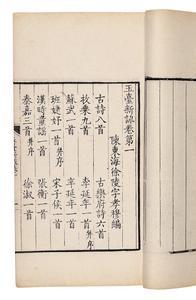 玉臺新詠卷第一
陳東海徐陵字孝穆編
古詩八首 古樂府詩六首
枚乘九首 李延年一首
蘇武一首 辛延年一首
班婕妤一首并序 宋子侯一首
漢時童謠一首 張衡一首
秦嘉三首并序 徐淑一首